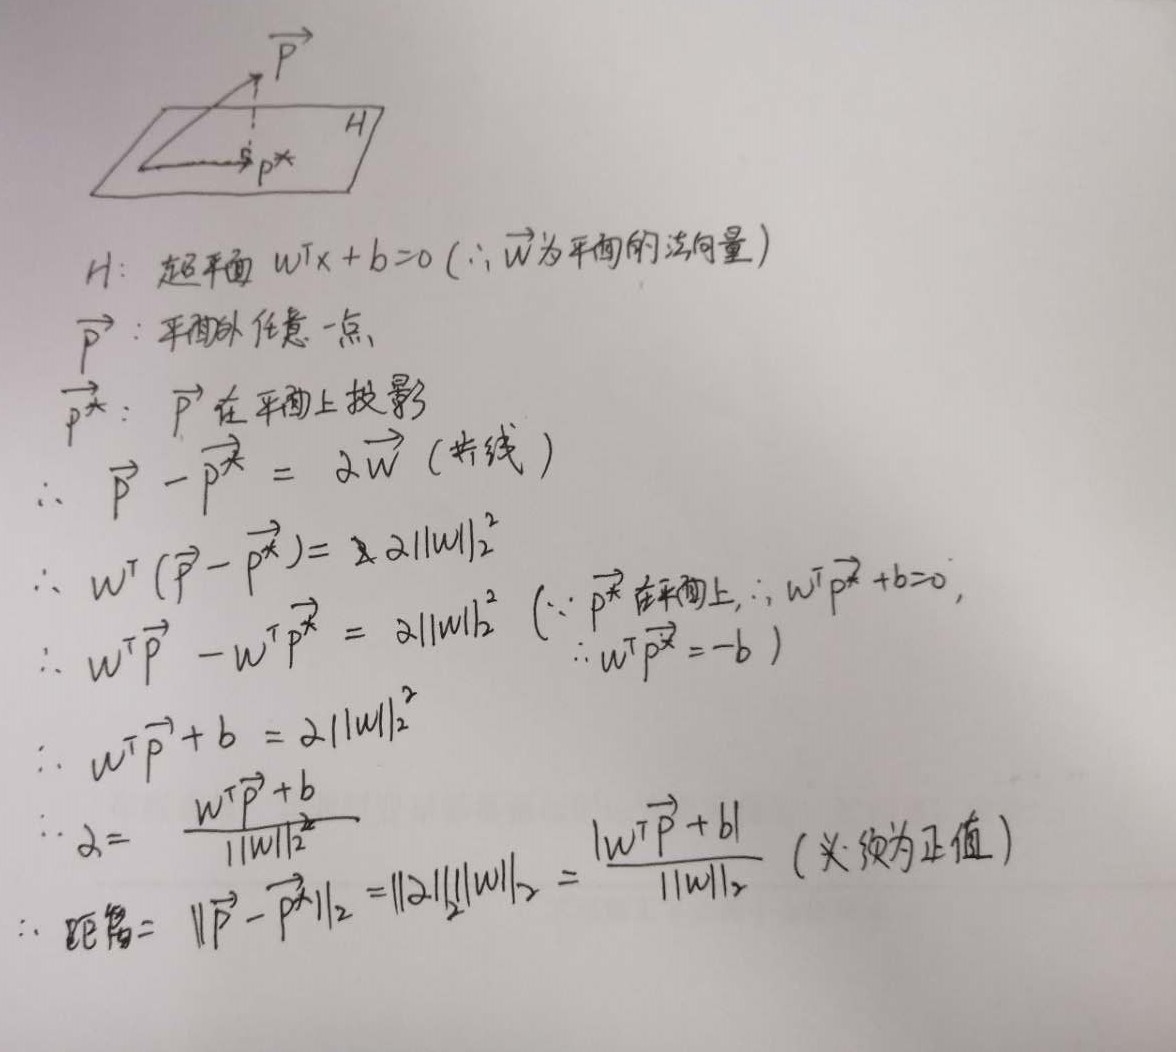 P⃗
H
P*
H: 超平面 wᵀx + b = 0 (∴ w⃗为平面的法向量)
P⃗ : 平面外任意一点
P⃗* : P⃗ 在平面上投影
∴ P⃗ − P⃗* = αw⃗ (共线)
∴ wᵀ(P⃗ − P⃗*) = α||w||₂²
∴ wᵀP⃗ − wᵀP⃗* = α||w||₂² (∵ P⃗* 在平面上, ∴ wᵀP⃗* + b = 0,
∴ wᵀP⃗* = −b )
∴ wᵀP⃗ + b = α||w||₂²
∴ α = (wᵀP⃗ + b) / ||w||₂²
∴ 距离 = ||P⃗ − P⃗*||₂ = ||α||₂||w||₂ = |wᵀP⃗ + b| / ||w||₂ (必须为正值)